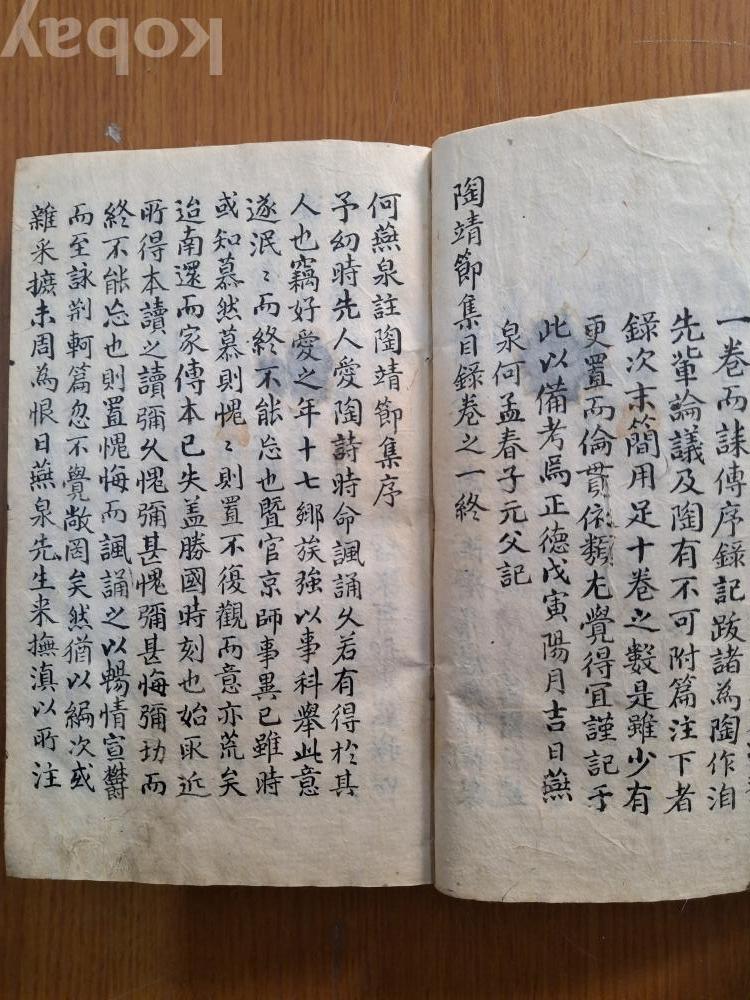 一卷而誄傳序錄記跋諸為陶作洎
先軰論議及陶有不可附篇注下者
錄次末簡用足十卷之數是雖少有
更置而倫貫依類尤覺得宜謹記于
此以備考焉正德戊寅陽月吉日蕪
泉何孟春子元父記
陶靖節集目錄卷之一終
何蕪泉註陶靖節集序
予幼時先人愛陶詩時命諷誦久若有得於其
人也竊好愛之年十七鄉族強以事科舉此意
遂泯〻而終不能忘也暨官京師事異已雖時
或知慕然慕則愧〻則置不復觀而意亦荒矣
迨南還而家傳本已失盖勝國時刻也始取近
所得本讀之讀彌久愧彌甚愧彌甚悔彌功而
終不能忘也則置愧悔而諷誦之以暢情宣欝
而至詠荆軻篇忽不覺敞罔矣然猶以編次或
雜采摭未周為恨日蕪泉先生来撫滇以所注
kobay